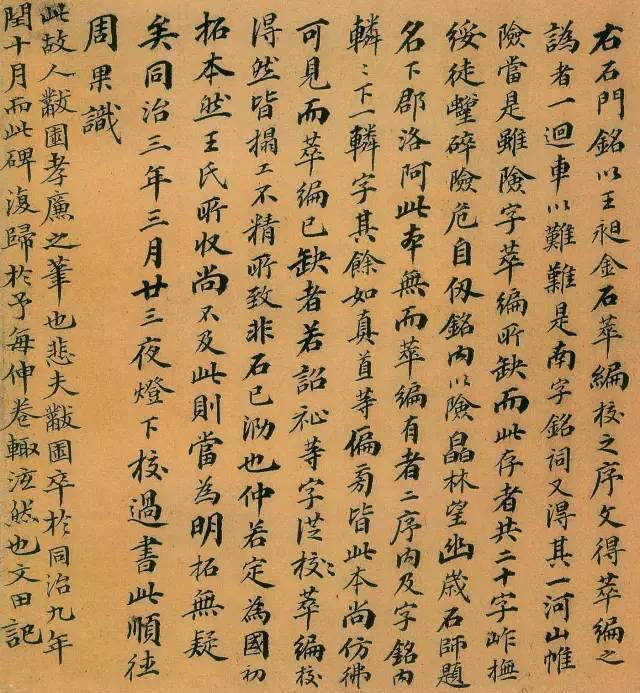 右石門銘以王昶金石萃編校之序文得萃編之
譌者一迴車以難難是南字銘詞又得其一河山帷
險當是雖險字萃編所缺而此存者共二十字岞
綏徒蠥碎險危自仭銘內以險晶林望幽歲石師題
名下郡洛阿此本無而萃編有者二序內及字銘內
轔〻下一轔字其餘如真首等偏旁皆此本尚仿彿
可見而萃編已缺者若詔祉等字從校〻萃編校
得然皆搨工不精所致非石已泐也仲若定為國初
拓本然王氏所收尚不及此則當為明拓無疑
矣同治三年三月廿三夜燈下校過書此順德
周果識
此故人黻園孝廉之筆也悲夫黻園卒於同治九年
閏十月而此碑復歸於予每伸卷輒泫然也文田記